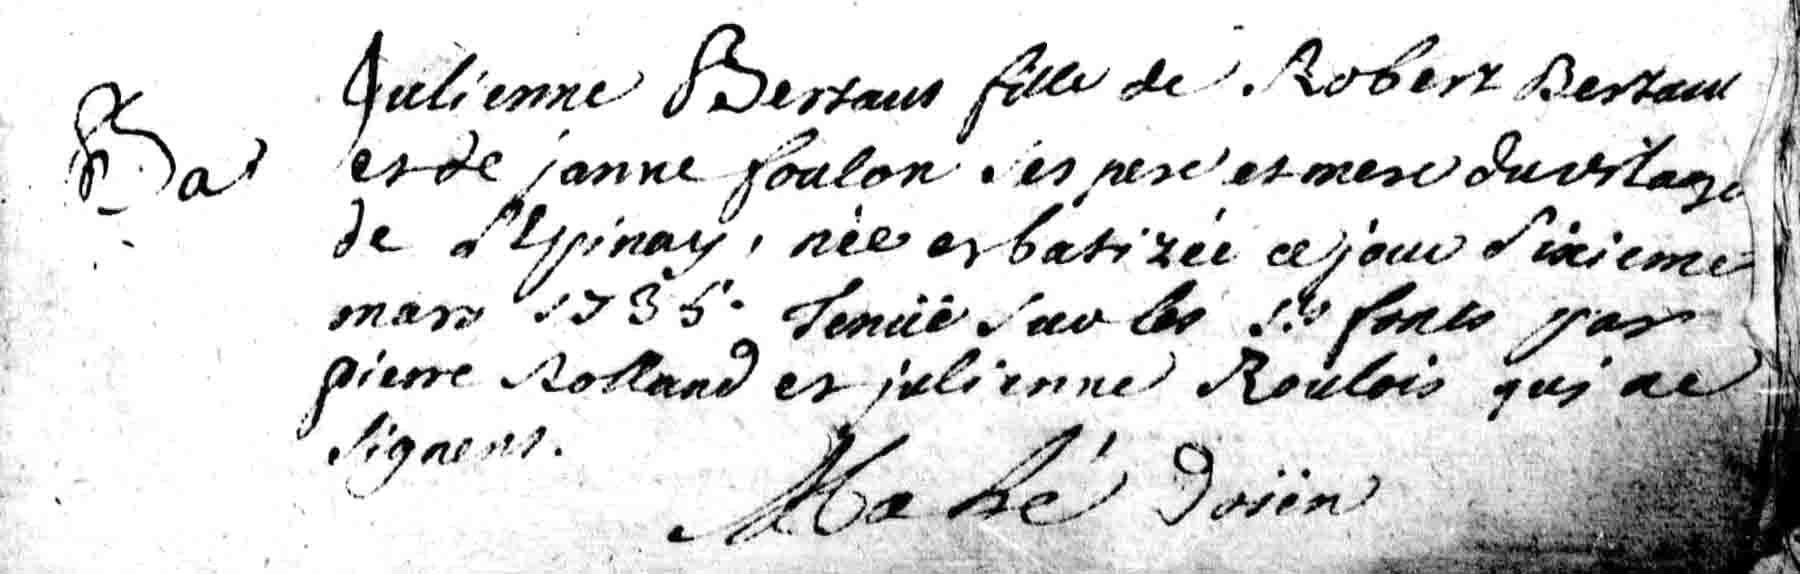 Julienne Bertaut fille de Robert Bertaut
Ba et de janne foulon ses pere et mere du vilage
de l'Epinay, née et batizée ce jour sixieme
mars 1735. Tenüe sur les sts fonts par
pierre Rolland et julienne Roulois qui ne
signent.
Mahé doïen